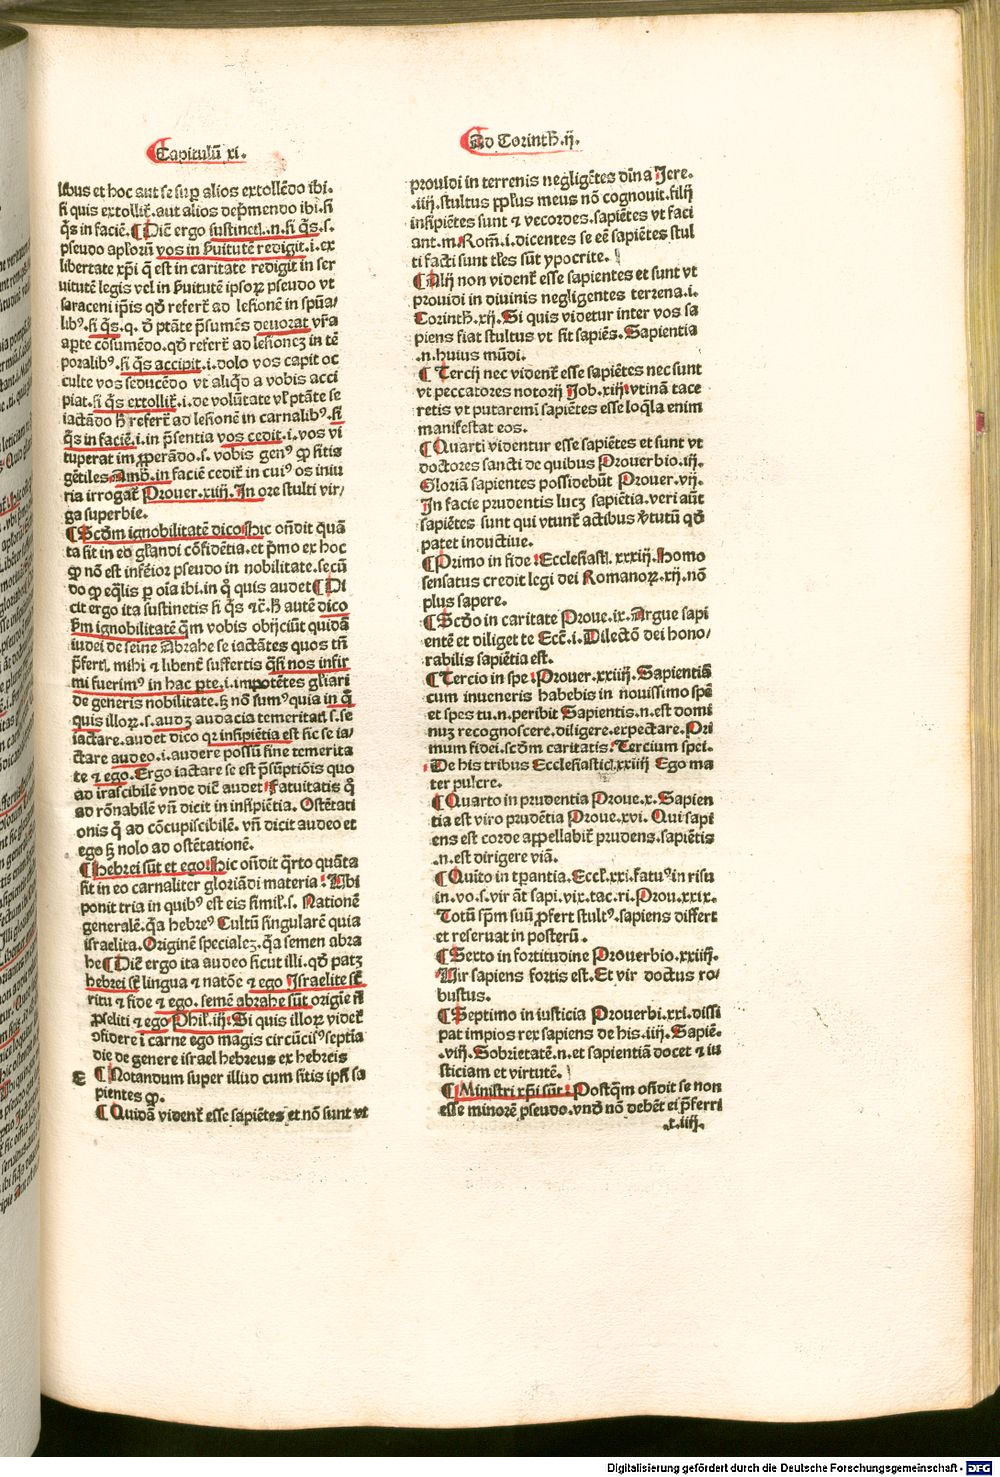 Capitulū xi.
libus et hoc aut se suꝑ alios extollēdo ibi.
si quis extollit̉. aut alios dep̄mendo ibi. si
q̄s in faciē. ¶ Diē ergo sustinetl̉. n. si q̄s. s.
pseudo apl̉oꝝ vos in ẜuitutē redigit. i. ex
libertate xp̄i q̄ est in caritate redigit in ser
uitutē legis vel in ẜuitutē ipsoꝝ pseudo vt
saraceni ip̄is qd̄ refert̉ ad lesionē in spūa/
libꝰ. si q̄s. q. d̄ ptāte p̄sumēs deuorat vr̄a
aꝑte cōsumēdo. qd̄ refert̉ ad lesioneꝫ in tē
poralibꝰ. si q̄s accipit. i. dolo vos capit oc
culte vos seducēdo vt aliqd̄ a vobis acci
piat. si q̄s extollit̉. i. de volūtate vl̉ ptāte se
iactādo ħ refert̉ ad lesionē in carnalibꝰ. si
q̄s in faciē. i. in p̄sentia vos cedit. i. vos vi
tuperat im ꝓperādo. s. vobis genꝰ ꝙ sitis
gētiles. Amb̄. in faciē cedit̉ in cuiꝰ os iniu
ria irrogat̉ Prouer. xiiij. In ore stulti vir/
ga superbie.
¶ Scd̄m ignobilitatē dico. Hic on̄dit quā
ta sit in eo gl̉andi cōfidētia. et p̄mo ex hoc
ꝙ nō est inferior pseudo in nobilitate. secū
do ꝙ eq̄lis ꝑ oīa ibi. in q̄ quis audet ¶ Di
cit ergo ita sustinetis si q̄s ⁊c̄. ħ autē dico
ẜm ignobilitatē q̄m vobis obijciūt quidā
iudei de seīne Abrahe se iactātes quos tn̄
p̄fertl̉. mihi ⁊ libent̉ suffertis q̄si nos infir
mi fuerimꝰ in hac ꝑte. i. impotētes gl̉iari
de generis nobilitate. ꝫ nō sumꝰ quia in q̄
quis illoꝝ. s. audꝫ audacia temeritatl̉. s. se
iactare. audet dico qꝛ insipiētia est sic se ia/
ctare audeo. i. audere possū sine temerita
te ⁊ ego. Ergo iactare se est p̄sūptiōis quo
ad irascibilē vnde diē audet. Fatuitatis q̄
ad rōnabilē vn̄ dicit in insipiētia. Ostētati
onis q̄ ad cōcupiscibilē. vn̄ dicit audeo et
ego ꝫ nolo ad ostētationē.
¶ Hebrei sūt et ego. Hic on̄dit q̄rto quāta
sit in eo carnaliter gloriādi materia. Ubi
ponit tria in quibꝰ est eis simil̉. s. Nationē
generalē. q̄a hebreꝰ Cultū singularē quia
israelita. Originē specialeꝫ. q̄a semen abra
he ¶ Diē ergo ita audeo sicut illi. qd̄ patꝫ
hebrei st̄ lingua ⁊ natōe ⁊ ego Israelite st̄
ritu ⁊ fide ⁊ ego. semē abrahe sūt origīe n̄
ꝓseliti ⁊ ego Phil̉. iij. Si quis illoꝝ videt̉
ꝯfidere ī carne ego magis circūcisꝰ septīa
die de genere israel hebreus ex hebreis
E ¶ Notandum super illud cum sitis ipsi sa
pientes ꝙ.
¶ Quidā vident̉ esse sapiētes et nō sunt vt
Ad Corintħ. ij.
prouidi in terrenis negligētes dīna Jere.
.iiij. stultus ppl̉us meus nō cognouit. filij
insipiētes sunt ⁊ vecordes. sapiētes vt faci
ant. m. Rom̄. i. dicentes se eē sapiētes stul
ti facti sunt tl̉es sūt ypocrite.
¶ Alij non vident̉ esse sapientes et sunt vt
prouidi in diuinis negligentes terrena. i.
Corintħ. xij. Si quis videtur inter vos sa
piens fiat stultus vt sit sapiēs. Sapientia
.n. huius mūdi.
¶ Tercij nec vident̉ esse sapiētes nec sunt
vt peccatores notorij Job. xiij. vtinā tace
retis vt putaremī sapiētes esse loq̄la enim
manifestat eos.
¶ Quarti videntur esse sapiētes et sunt vt
doctores sancti de quibus Prouerbio. iij.
Gloriā sapientes possidebūt Prouer. vij.
In facie prudentis lucꝫ sapiētia. veri aūt
sapiētes sunt qui vtunt̉ actibus v̄tutū qd̄
patet inductiue.
¶ Primo in fide. Ecclesiastl̉. xxxiij. Homo
sensatus credit legi dei Romanoꝝ. xij. nō
plus sapere.
¶ Scd̄o in caritate Proue. ix. Argue sapi
entē et diliget te Eccl̉. i. Dilectō dei hono/
rabilis sapiētia est.
¶ Tercio in spe. Prouer. xxiiij. Sapientiā
cum inueneris habebis in nouissimo spē
et spes tu. n. peribit Sapientis. n. est domi
nuꝫ recognoscere. diligere. expectare. Pri
mum fidei. scd̄m caritatis. Tercium spei.
. De his tribus Ecclesiasticl̉. xxiiij Ego ma
ter pulcre.
¶ Quarto in prudentia Proue. x. Sapien
tia est viro prudētia Proue. xvi. Qui sapi
ens est corde appellabit̉ prudens. sapiētis
.n. est dirigere viā.
¶ Quīto in tꝑantia. Eccl̉. xxi. fatuꝰ in risu
in. vo. s. vir āt sapi. vix. tac. ri. Prou. xxix.
Totū sp̄m suū ꝓfert stultꝰ. sapiens differt
et reseruat in posterū.
¶ Sexto in fortitudine Prouerbio. xxiiij.
Uir sapiens fortis est. Et vir doctus ro/
bustus.
¶ Septimo in iusticia Prouerbi. xxi. dissi
pat impios rex sapiens de his. iiij. Sapiē.
.viij. Sobrietatē. n. et sapientiā docet ⁊ iu
sticiam et virtutē.
¶ Ministri xp̄i sūt. Postq̄m on̄dit se non
esse minorē pseudo. vnd̄ nō debēt ei p̄ferri
.t. iiij.
Digitalisierung gefördert durch die Deutsche Forschungsgemeinschaft - DFG